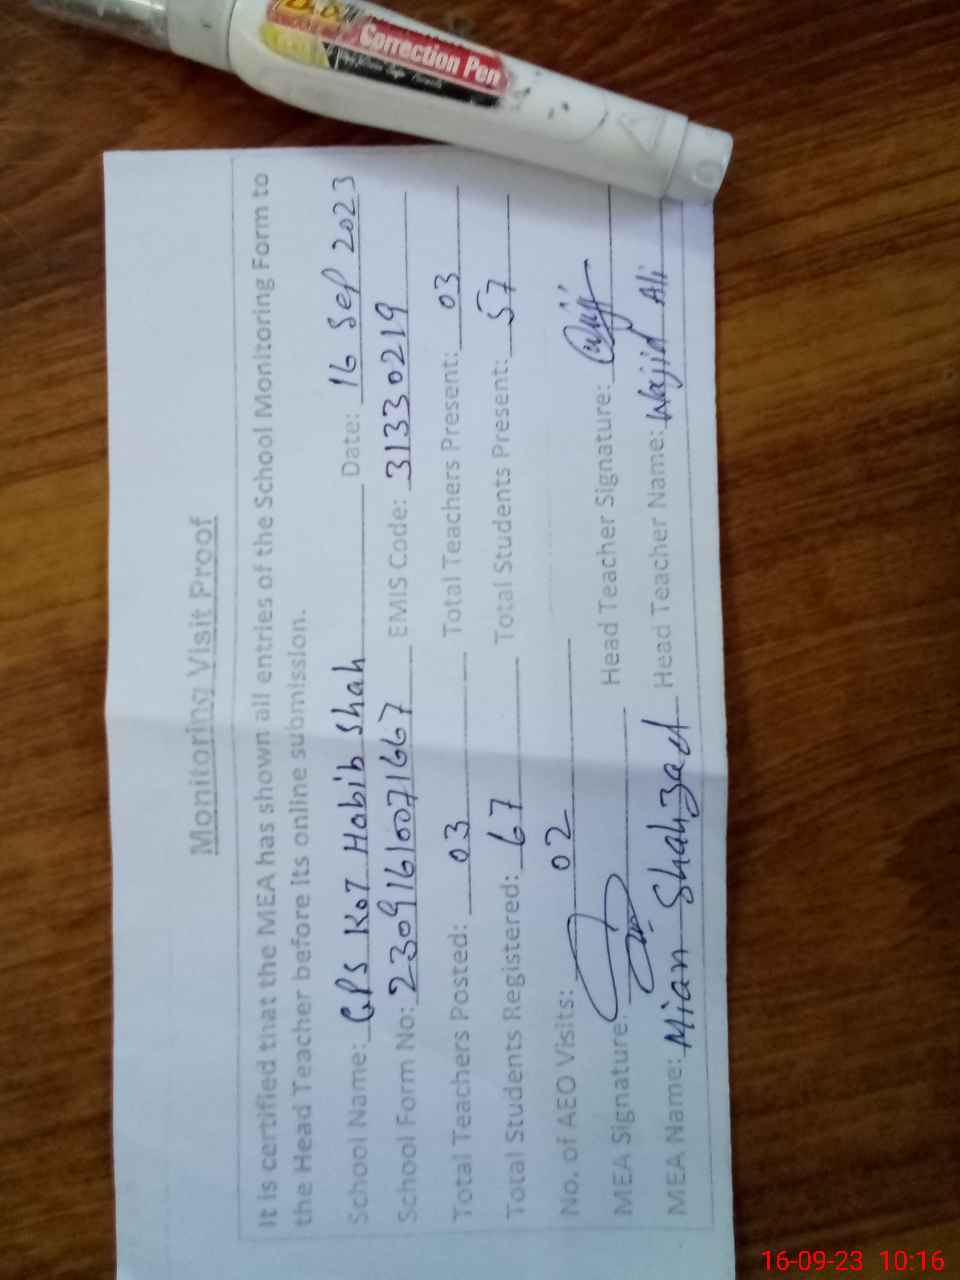 Correction Pen
Monitoring Visit Proof
It is certified that the MEA has shown all entries of the School Monitoring Form to
the Head Teacher before its online submission.
School Name: GPS Kot Habib Shah Date: 16 Sep 2023
School Form No: 23091610071667 EMIS Code: 31330219
Total Teachers Posted: 03 Total Teachers Present: 03
Total Students Registered: 67 Total Students Present: 57
No. of AEO Visits: 02
MEA Signature: Head Teacher Signature:
MEA Name: Mian Shahzad Head Teacher Name: Wajid Ali
16-09-23 10:16